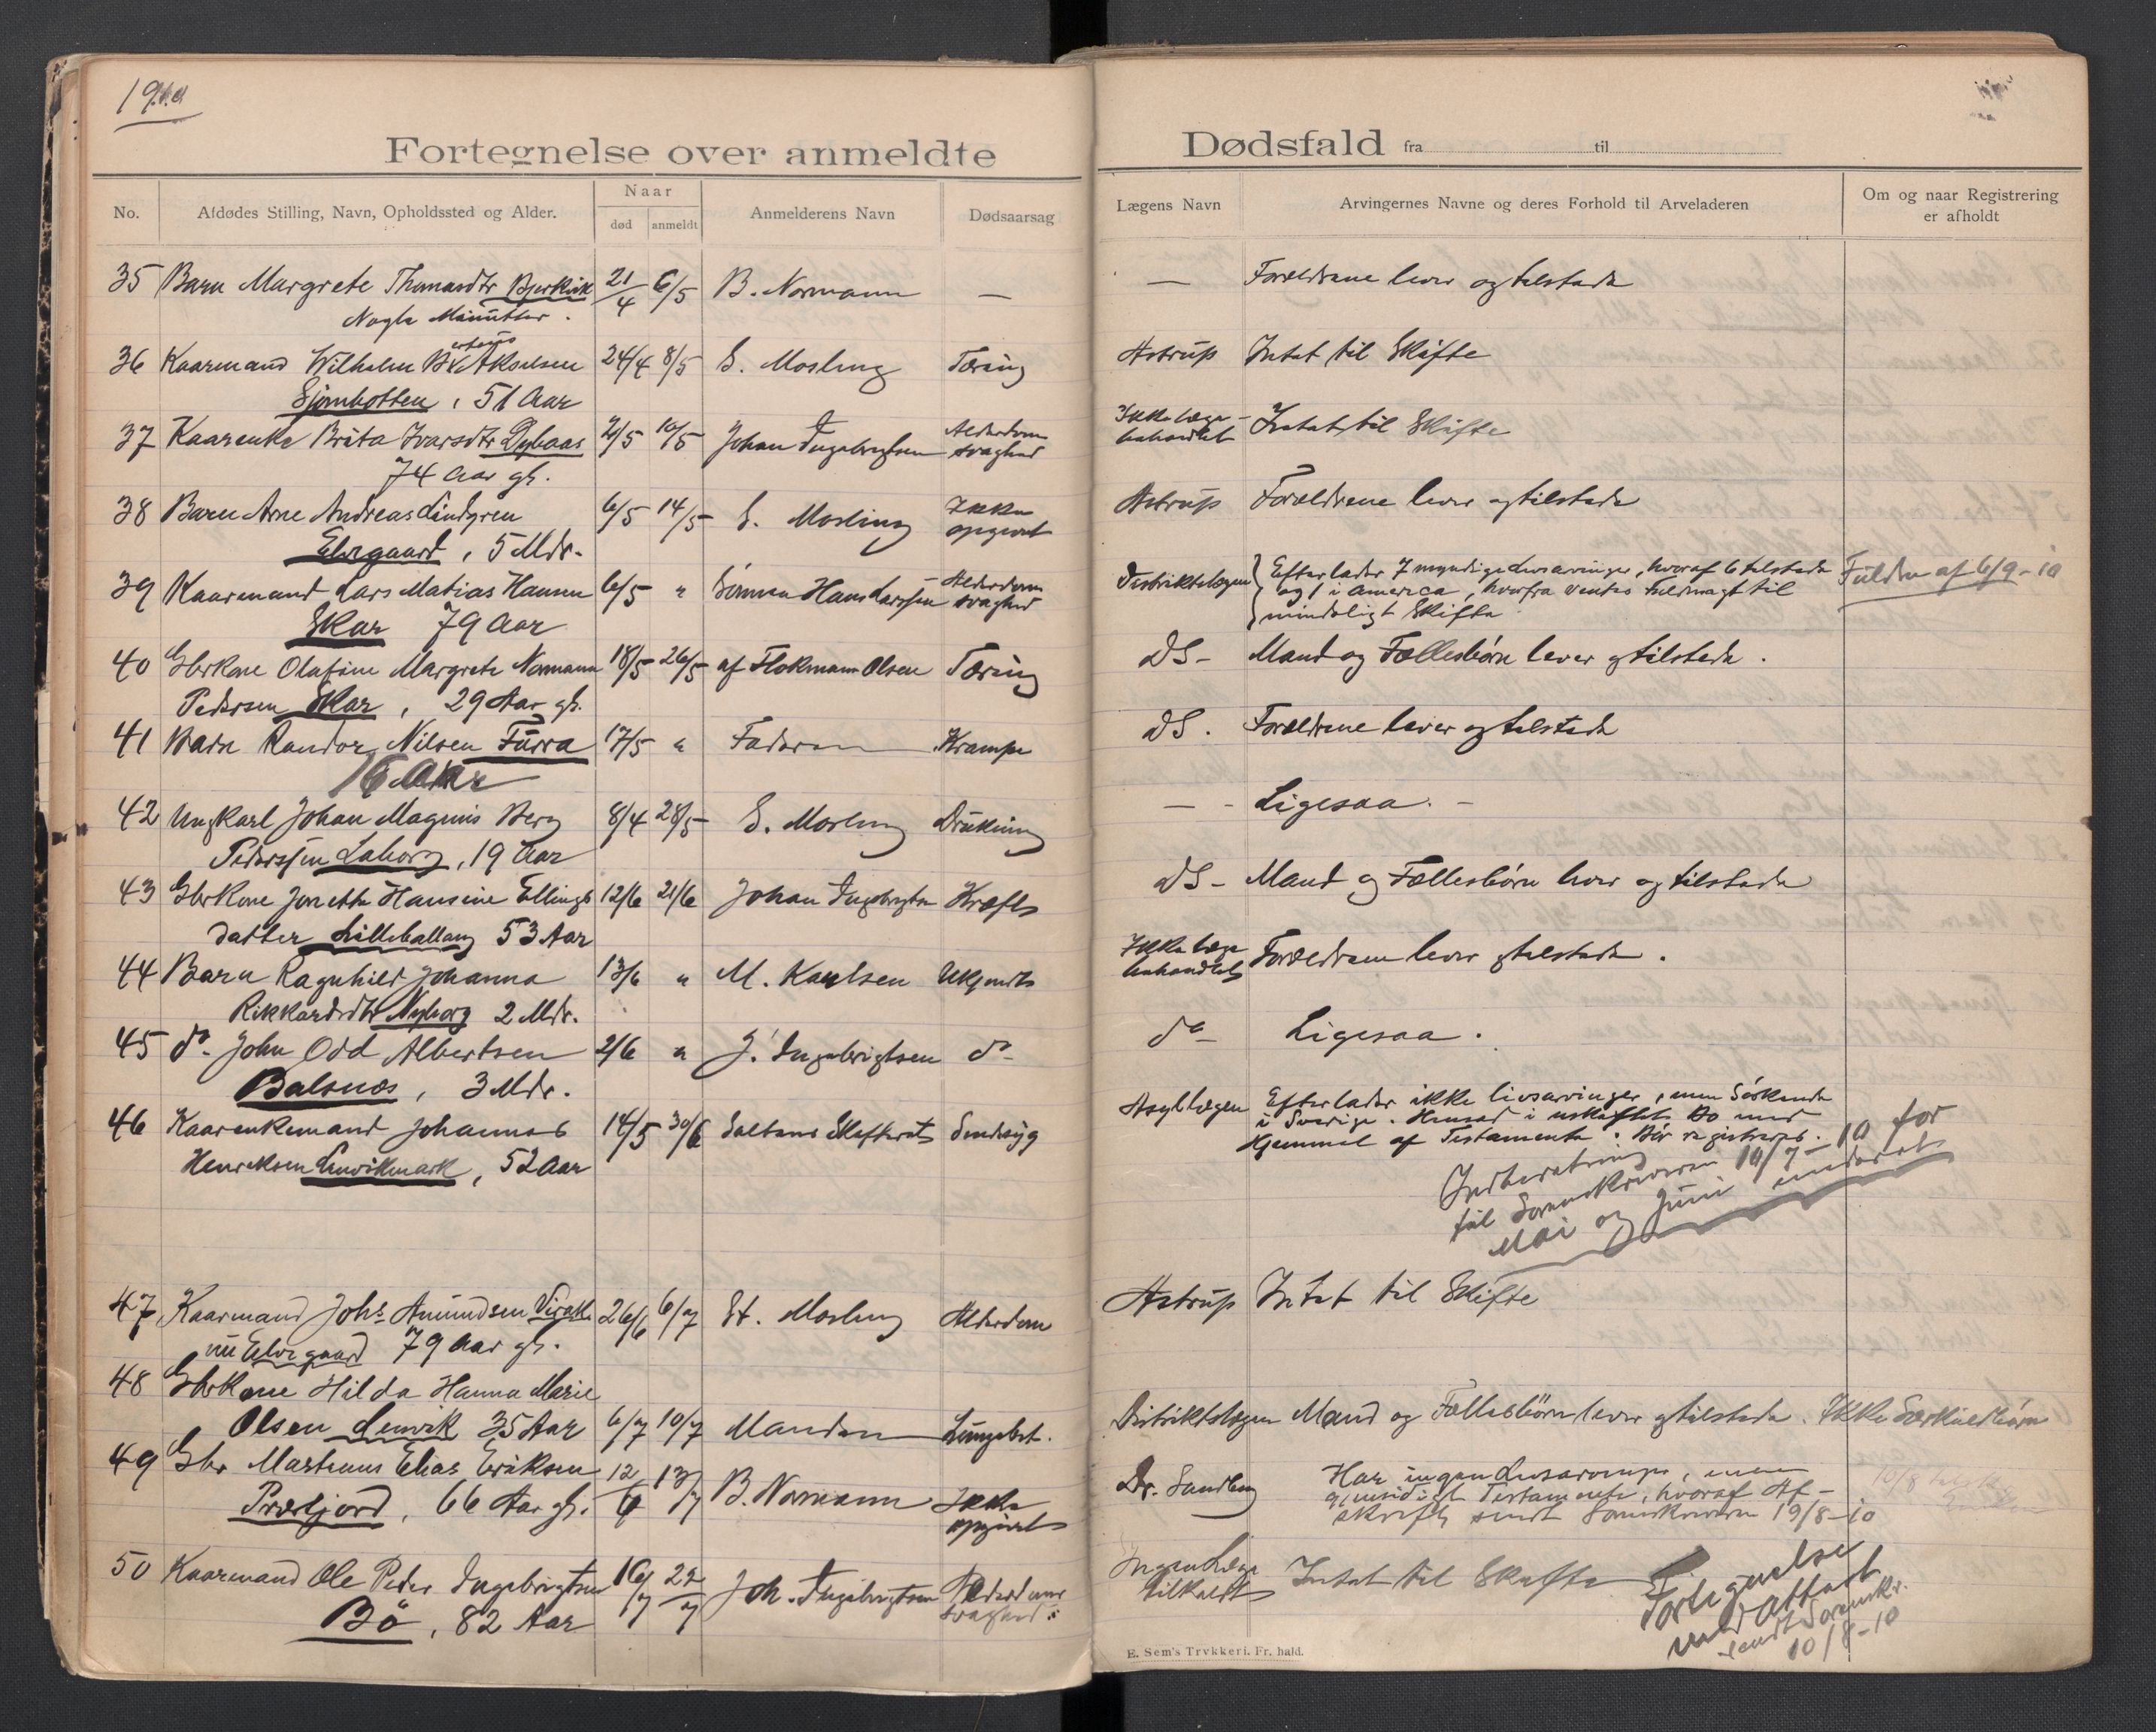 1910
Fortegnelse over anmeldte Dødsfald fra til
No. Afdødes Stilling, Navn, Opholdssted og Alder. Naar død anmeldt Anmelderens Navn Dødsaarsag Lægens Navn Arvingernes Navne og deres Forhold til Arveladeren Om og naar Registrering er afholdt
35 Barn Margrete Thomasdtr Bjerkvik 21/4 6/5 B. Normann — — Forældrene lever og tilstede
Nogle Minutter.
36 Kaarmand Wilhelm Akselsen 24/4 8/5 E. Mosling Tæring Astrup Intet til Skifte
Sjombotten, 51 Aar
37 Kaarenke Brita Ivarsdtr Dybaas 2/5 10/5 Johan Ingebrigtsen Alderdoms svaghed Ikke læge- behandlet Intet til Skifte
74 Aar gl.
38 Barn Arne Andreas Lindgren 6/5 14/5 E. Mosling Ikke opgivet Astrup Forældrene lever og tilstede
Elvegaard, 5 Mdr.
39 Kaarmand Lars Matias Hansen 6/5 " Sönnen Hans Larssen Alderdoms svaghed Distriktslægen Efterlader 7 myndige Livsarvinger, hvoraf 6 tilstede
og 1 i America, hvorfra ventes Fuldmagt til
mindeligt Skifte
Fuldm af 6/9-10
Skar 79 Aar
40 Gbrkone Olafine Margrete Normann 18/5 26/5 af Flokmann Olsen Tæring DS- Mand og Fællesbørn lever og tilstede.
Pedersen Skar, 29 Aar gl.
41 Barn Randor Nilsen Furra 17/5 " Faderen Krampe DS. Forældrene lever og tilstede
42 Ungkarl Johan Magnus Berg 8/4 28/5 E. Mosling Drukning — - Ligesaa. -
Pederssen Laberg, 19 Aar
43 Gbrkone Jonette Hansine Ellings 12/6 21/6 Johan Ingebrigtsen Kræft DS- Mand og Fællesbørn lever og tilstede
datter Lilleballang 53 Aar
44 Barn Ragnhild Johanna 13/6 " M. Karlsen Ukjendt Ikke læge behandlet Forældrene lever og tilstede.
Rikkardsdtr Nyborg 2 Mdr.
45 do. John Odd Albertsen 2/6 " J. Ingebrigtsen do- do- Ligesaa.
Balsnes, 3 Mdr.
46 Kaarenkemand Johannes 14/5 30/6 Saltens Skifteret Sindsyg Asyllægen Efterlader ikke livsarvinger, men Söskende
i Sverige. Hensad i uskiftet Bo med
Hjemmel af Testamente. Bör registreres.
Henriksen Lenvikmark, 52 Aar
Indberetning
til Sorenskriveren 10/7-10 for
Mai og Juni indsendt
47 Kaarmand Johs Amundsen 26/6 6/7 E. Mosling Alderdom Astrup Intet til Skifte
nu Elvegaard 79 Aar gl.
48 Gbrkone Hilda Hanna Marie
Olsen Lenvik 35 Aar 6/7 10/7 Manden Lungebet. Distriktslægen Mand og Fællesbörn lever og tilstede. Ikke Særkuldbörn
49 Gbr Martinus Elias Eriksen 12/6 13/7 B. Normann Ikke opgivet Dr. Sandberg Har ingen Livsarvinger, men
gjensidigt Testamente, hvoraf Af-
skrift sendt Sorenskriveren 19/8-10
Præstjord, 66 Aar gl.
50 Kaarmand Ole Peder Ingebrigtsen 16/7 22/7 Joh. Ingebrigtsen Alderdoms svaghed. Ingen Læge tilkaldt Intet til Skifte
Bö, 82 Aar
Fortegnelse
med Attest
sendt Sorenskr.
10/8-10
E. Sem's Trykkeri. Fr. hald.